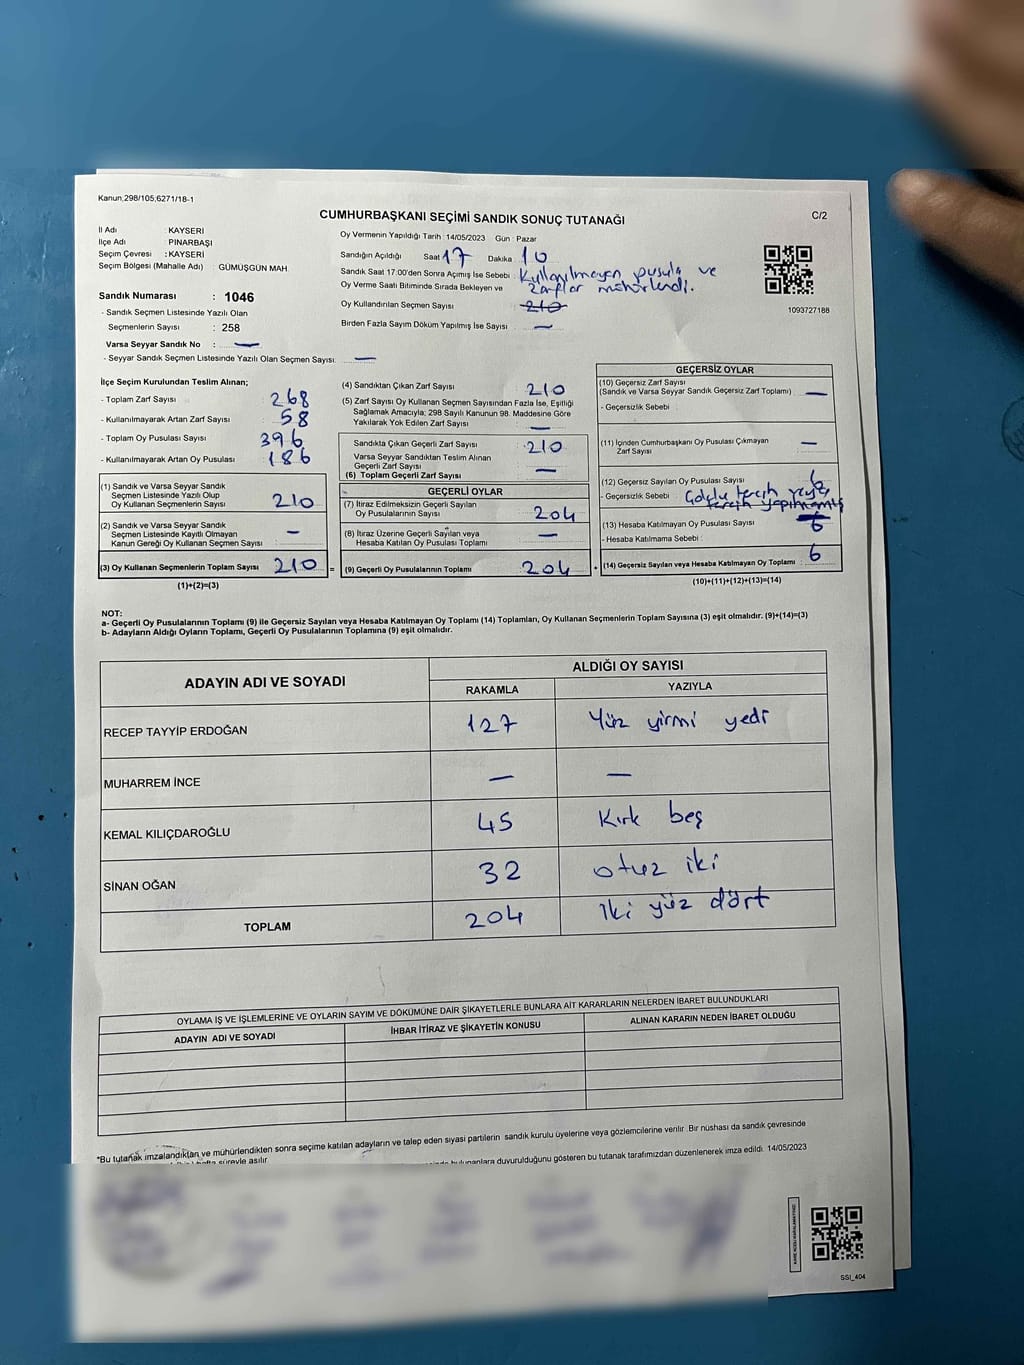 Kanun;298/105;6271/18-1
CUMHURBAŞKANI SEÇİMİ SANDIK SONUÇ TUTANAĞI
C/2
İl Adı : KAYSERİ
İlçe Adı : PINARBAŞI
Seçim Çevresi : KAYSERİ
Seçim Bölgesi (Mahalle Adı) : GÜMÜŞGÜN MAH.
Sandık Numarası : 1046
- Sandık Seçmen Listesinde Yazılı Olan
Seçmenlerin Sayısı : 258
Varsa Seyyar Sandık No : —
- Seyyar Sandık Seçmen Listesinde Yazılı Olan Seçmen Sayısı: —
Oy Vermenin Yapıldığı Tarih : 14/05/2023 Gün : Pazar
Sandığın Açıldığı Saat 17 Dakika 10
Sandık Saat 17:00'den Sonra Açımış İse Sebebi : Kullanılmayan pusula ve
Oy Verme Saati Bitiminde Sırada Bekleyen ve zarflar mühürlendi.
Oy Kullandırılan Seçmen Sayısı 210
Birden Fazla Sayım Döküm Yapılmış İse Sayısı —
1093727188
İlçe Seçim Kurulundan Teslim Alınan;
- Toplam Zarf Sayısı 268
- Kullanılmayarak Artan Zarf Sayısı 58
- Toplam Oy Pusulası Sayısı 396
- Kullanılmayarak Artan Oy Pusulası 186
(1) Sandık ve Varsa Seyyar Sandık
Seçmen Listesinde Yazılı Olup
Oy Kullanan Seçmenlerin Sayısı 210
(2) Sandık ve Varsa Seyyar Sandık
Seçmen Listesinde Kayıtlı Olmayan
Kanun Gereği Oy Kullanan Seçmen Sayısı —
(3) Oy Kullanan Seçmenlerin Toplam Sayısı 210
(1)+(2)=(3)
(4) Sandıktan Çıkan Zarf Sayısı 210
(5) Zarf Sayısı Oy Kullanan Seçmen Sayısından Fazla İse, Eşitliği
Sağlamak Amacıyla; 298 Sayılı Kanunun 98. Maddesine Göre
Yakılarak Yok Edilen Zarf Sayısı —
Sandıkta Çıkan Geçerli Zarf Sayısı 210
Varsa Seyyar Sandıktan Teslim Alınan
Geçerli Zarf Sayısı —
(6) Toplam Geçerli Zarf Sayısı
GEÇERLİ OYLAR
(7) İtiraz Edilmeksizin Geçerli Sayılan
Oy Pusulalarının Sayısı 204
(8) İtiraz Üzerine Geçerli Sayılan veya
Hesaba Katılan Oy Pusulası Toplamı —
= (9) Geçerli Oy Pusulalarının Toplamı 204
GEÇERSİZ OYLAR
(10) Geçersiz Zarf Sayısı
(Sandık ve Varsa Seyyar Sandık Geçersiz Zarf Toplamı) —
- Geçersizlik Sebebi
(11) İçinden Cumhurbaşkanı Oy Pusulası Çıkmayan
Zarf Sayısı —
(12) Geçersiz Sayılan Oy Pusulası Sayısı 6
- Geçersizlik Sebebi Çoklu tercih veya
tercih yapılmamış
(13) Hesaba Katılmayan Oy Pusulası Sayısı 6
- Hesaba Katılmama Sebebi :
(14) Geçersiz Sayılan veya Hesaba Katılmayan Oy Toplamı : 6
(10)+(11)+(12)+(13)=(14)
NOT:
a- Geçerli Oy Pusulalarının Toplamı (9) ile Geçersiz Sayılan veya Hesaba Katılmayan Oy Toplamı (14) Toplamları, Oy Kullanan Seçmenlerin Toplam Sayısına (3) eşit olmalıdır. (9)+(14)=(3)
b- Adayların Aldığı Oyların Toplamı, Geçerli Oy Pusulalarının Toplamına (9) eşit olmalıdır.
ADAYIN ADI VE SOYADI
ALDIĞI OY SAYISI
RAKAMLA YAZIYLA
RECEP TAYYİP ERDOĞAN 127 Yüz yirmi yedi
MUHARREM İNCE — —
KEMAL KILIÇDAROĞLU 45 Kırk beş
SİNAN OĞAN 32 otuz iki
TOPLAM 204 iki yüz dört
OYLAMA İŞ VE İŞLEMLERİNE VE OYLARIN SAYIM VE DÖKÜMÜNE DAİR ŞİKAYETLERLE BUNLARA AİT KARARLARIN NELERDEN İBARET BULUNDUKLARI
ADAYIN ADI VE SOYADI İHBAR İTİRAZ VE ŞİKAYETİN KONUSU ALINAN KARARIN NEDEN İBARET OLDUĞU
*Bu tutanak imzalandıktan ve mühürlendikten sonra seçime katılan adayların ve talep eden siyasi partilerin sandık kurulu üyelerine veya gözlemcilerine verilir. Bir nüshası da sandık çevresinde
hafta süreyle asılır. bulunanlara duyurulduğunu gösteren bu tutanak tarafımızdan düzenlenerek imza edildi. 14/05/2023
SSI_404